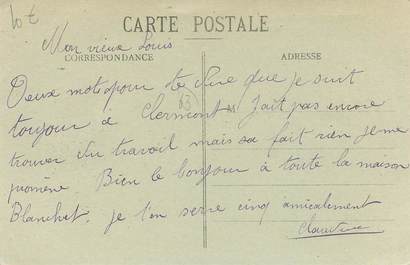 10 t
CARTE POSTALE
Mon vieux Louis
CORRESPONDANCE
ADRESSE
Deux mots pour te dire que je suit
toujour a Clermont
63
Jait pas encore
trouver du travail mais sa fait rien je me
promène. Bien le bonjour à toute la maison
Blanchet. je t'en serre cinq amicalement